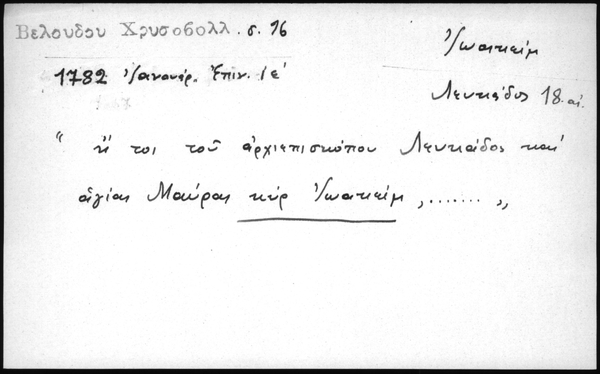 Βελουδου Χρυσοβολλ. σ. 96
Ἰωακεὶμ
1782 Ἰανουάρ. Ἐπιν. ιε΄
Λευκάδος 18. αἰ.
“ ἤ τοι τοῦ ἀρχιεπισκόπου Λευκάδος καὶ
ἁγίας Μαύρας κὺρ Ἰωακεὶμ , ....... „